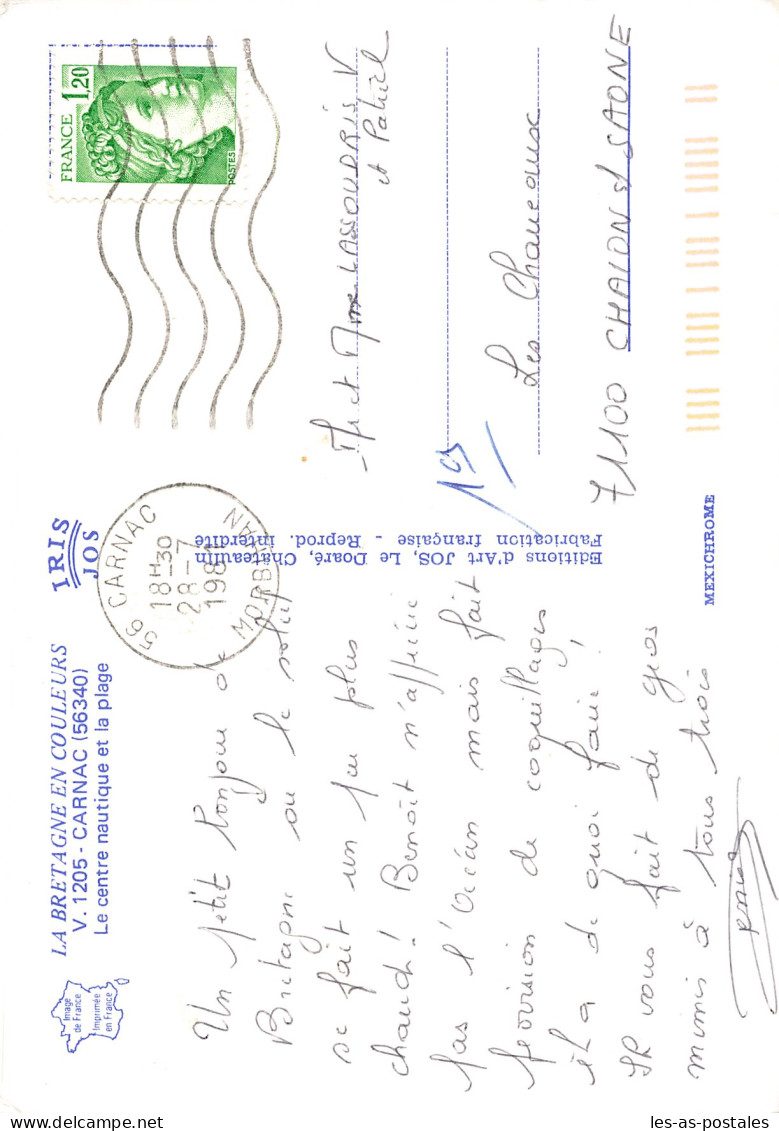 LA BRETAGNE EN COULEURS
V. 1205 - CARNAC (56340)
Le centre nautique et la plage
Image
de France
Imprimée
en France
IRIS
JOS
Un petit bonjour de
Bretagne où le soleil
se fait un peu plus
chaud! Benoît n'apprécie
pas l'Océan mais fait
provision de coquillages
il a de quoi faire!
Il vous fait de gros
mimis à tous trois
Editions d'Art JOS, Le Doaré, Châteaulin
Fabrication française - Reprod. interdite
MEXICHROME
56 CARNAC
18H30
28-7
1981
MORBIHAN
FRANCE
1,20
POSTES
Mr et Mme LASSOUDRIS V
et Patrick
Les Chaneaux
71100 CHALON S/ SAONE
les-as-postales